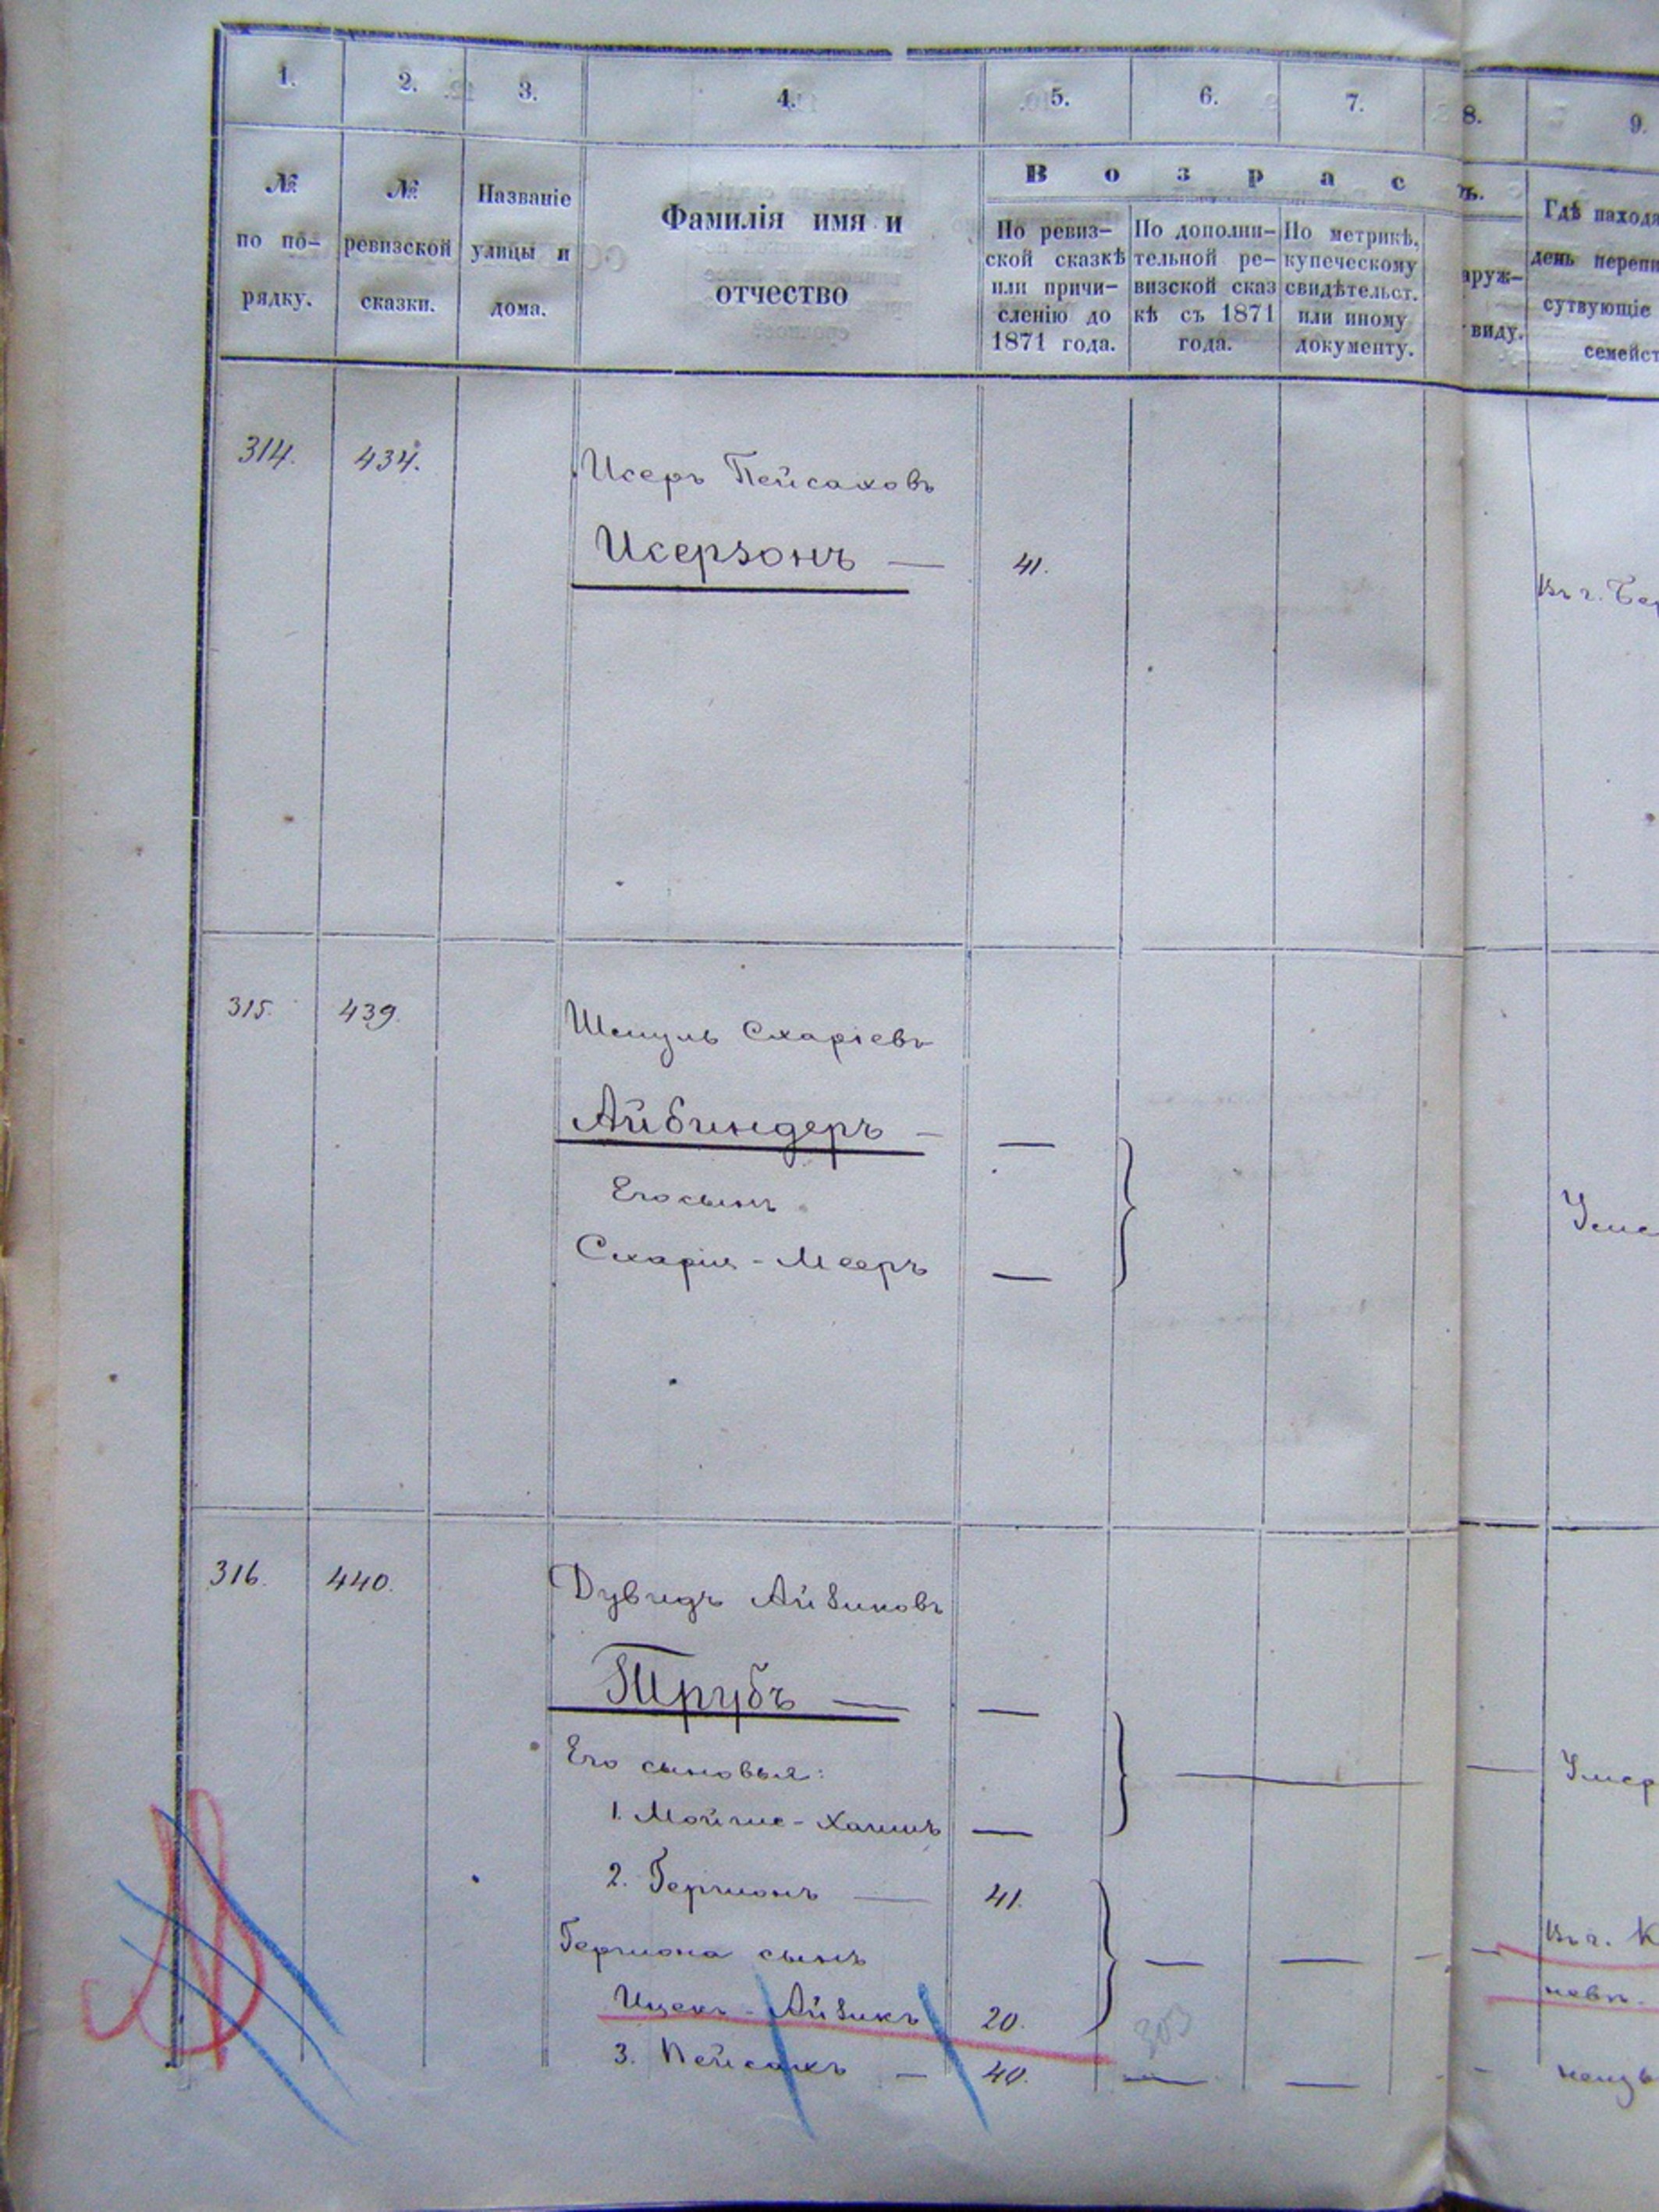 1. 2. 3. 4. 5. 6. 7. 8. 9.
№ по по-рядку.
№ ревизской сказки.
Названіе улицы и дома.
Фамилія имя и
отчество
В о з р а с тъ.
По ревиз-
ской сказкѣ
или причи-
сленію до
1871 года.
По дополни-
тельной ре-
визской сказ
кѣ съ 1871
года.
По метрикѣ,
купеческому
свидѣтельст.
или иному
документу.
аруж-
виду.
Гдѣ наход
день переп
сутвующіе
семейст
314. 434. Исеръ Пейсаховъ
Исерзонъ — 41.
Въ г.
315. 439. Шмуль Схаріевъ
Айбиндеръ — —
Его сынъ
Схарія-Мееръ —
Уме
316. 440. Дувидъ Айзиковъ
Трубъ — —
Его сыновья:
Умер
1. Мойше-Хаимъ —
2. Гершонъ — 41.
Гершона сынъ
Въ г. К
Ицекъ-Айзикъ 20.
303
3. Пейсахъ — 40.